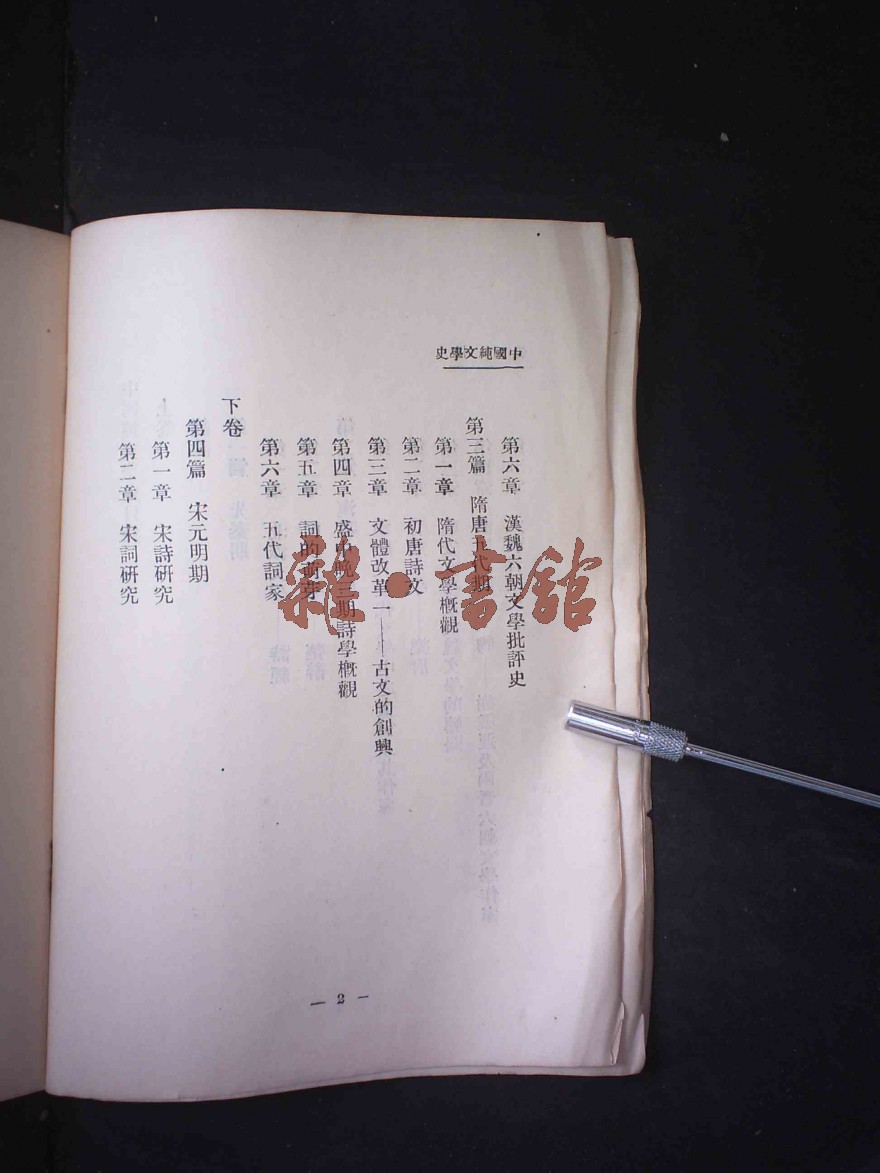 中國純文學史
第六章　漢魏六朝文學批評史
第三篇　隋唐五代期
第一章　隋代文學概觀
第二章　初唐詩文
第三章　文體改革一——古文的創興
第四章　盛中晚三期詩學概觀
第五章　詞的萌芽
第六章　五代詞家
下卷
第四篇　宋元明期
第一章　宋詩研究
第二章　宋詞研究
— 2 —
雜·書館